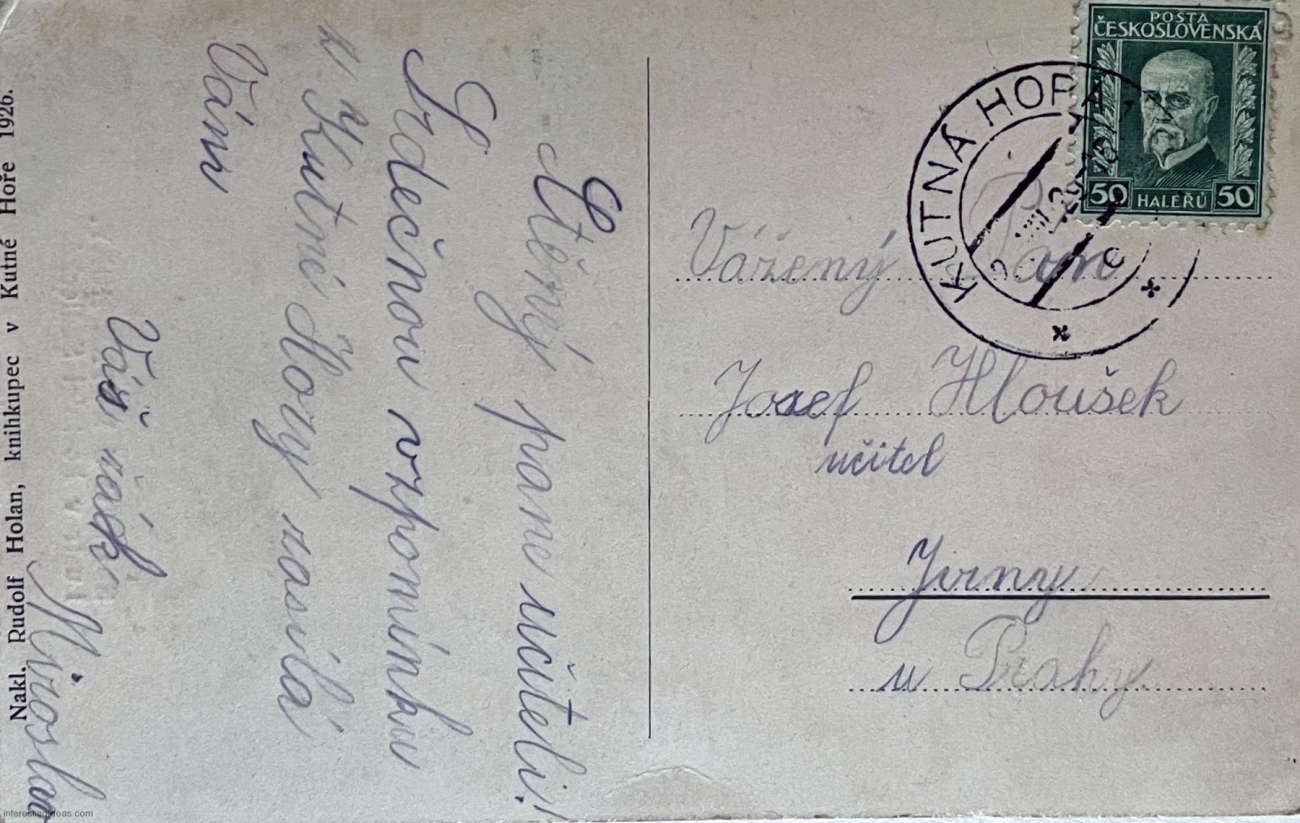 Ctěný pane učiteli!
Srdečnou vzpomínku
z Kutné Hory zasílá
Vám
Váš žák
Miroslav
Nakl. Rudolf Holan, knihkupec v Kutné Hoře 1926.
POŠTA
ČESKOSLOVENSKÁ
50 HALÉŘŮ 50
KUTNÁ HORA
Vážený Pan
Josef Hloušek
učitel
Jirny
u Prahy
interestingideas.com